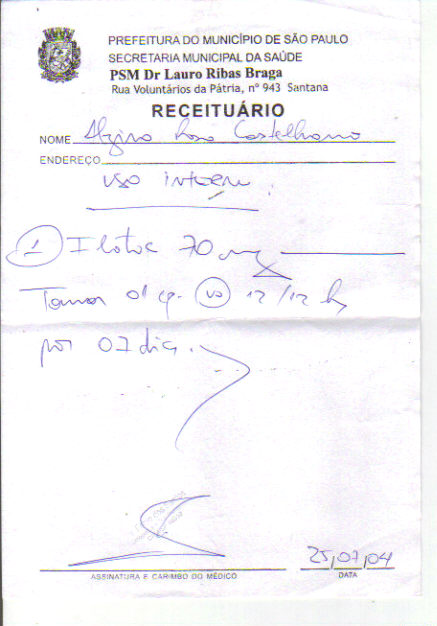 PREFEITURA DO MUNICÍPIO DE SÃO PAULO
SECRETARIA MUNICIPAL DA SAÚDE
PSM Dr Lauro Ribas Braga
Rua Voluntários da Pátria, nº 943 Santana
RECEITUÁRIO
NOME Castelhano
ENDEREÇO
uso interno
1 70 mg
Tomar 01 cp. vo 12/12 h
por 07 dias.
25/07/04
ASSINATURA E CARIMBO DO MÉDICO DATA